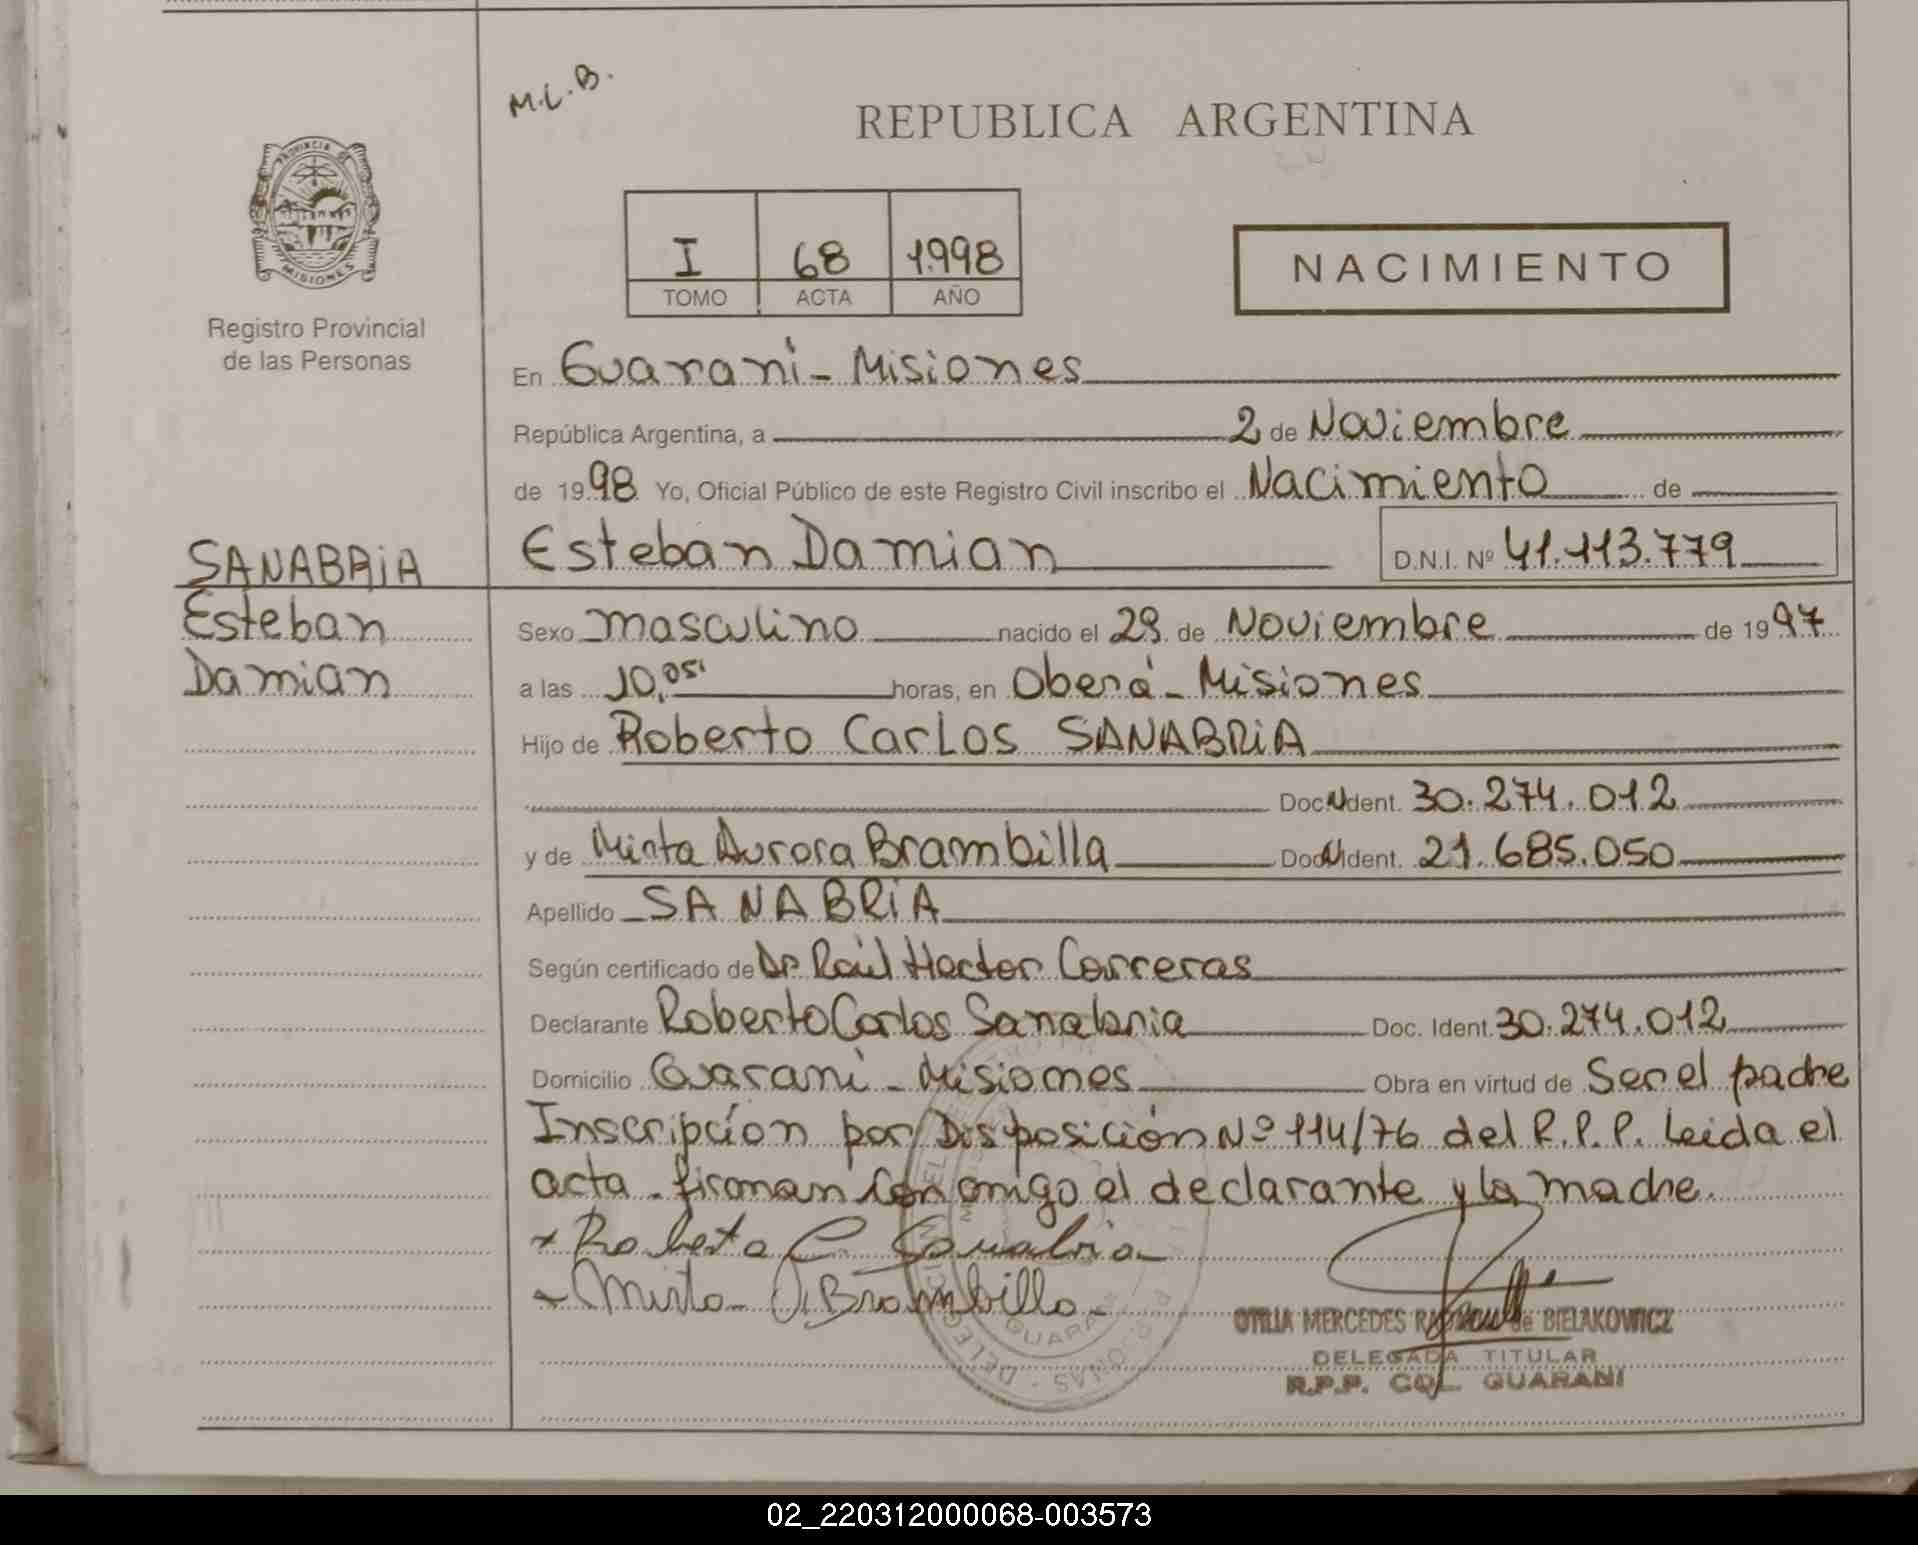 M.L.B.
REPUBLICA ARGENTINA
PROVINCIA DE
MISIONES
Registro Provincial
de las Personas
I 68 1998
TOMO ACTA AÑO
NACIMIENTO
En Guaraní - Misiones
República Argentina, a 2 de Noviembre
de 1998 Yo, Oficial Público de este Registro Civil inscribo el Nacimiento de
SANABRIA
Esteban Damian D.N.I. Nº 41.113.779
Esteban
Damian
Sexo masculino nacido el 29 de Noviembre de 1997
a las 10,05' horas, en Oberá - Misiones
Hijo de Roberto Carlos SANABRIA
Doc. Ident. 30.274.012
y de Mirta Aurora Brambilla Doc. Ident. 21.685.050
Apellido SANABRIA
Según certificado de Dr. Raúl Hector Carreras
Declarante Roberto Carlos Sanabria Doc. Ident. 30.274.012
Domicilio Guaraní - Misiones Obra en virtud de Ser el padre
Inscripción por Disposición Nº 114/76 del R.P.P. Leida el
acta firman conmigo el declarante y la madre.
x Roberto C. Sanabria
x Mirta A. Brambilla
OTILIA MERCEDES de BIELAKOWICZ
DELEGADA TITULAR
R.P.P. COL. GUARANI
02_220312000068-003573